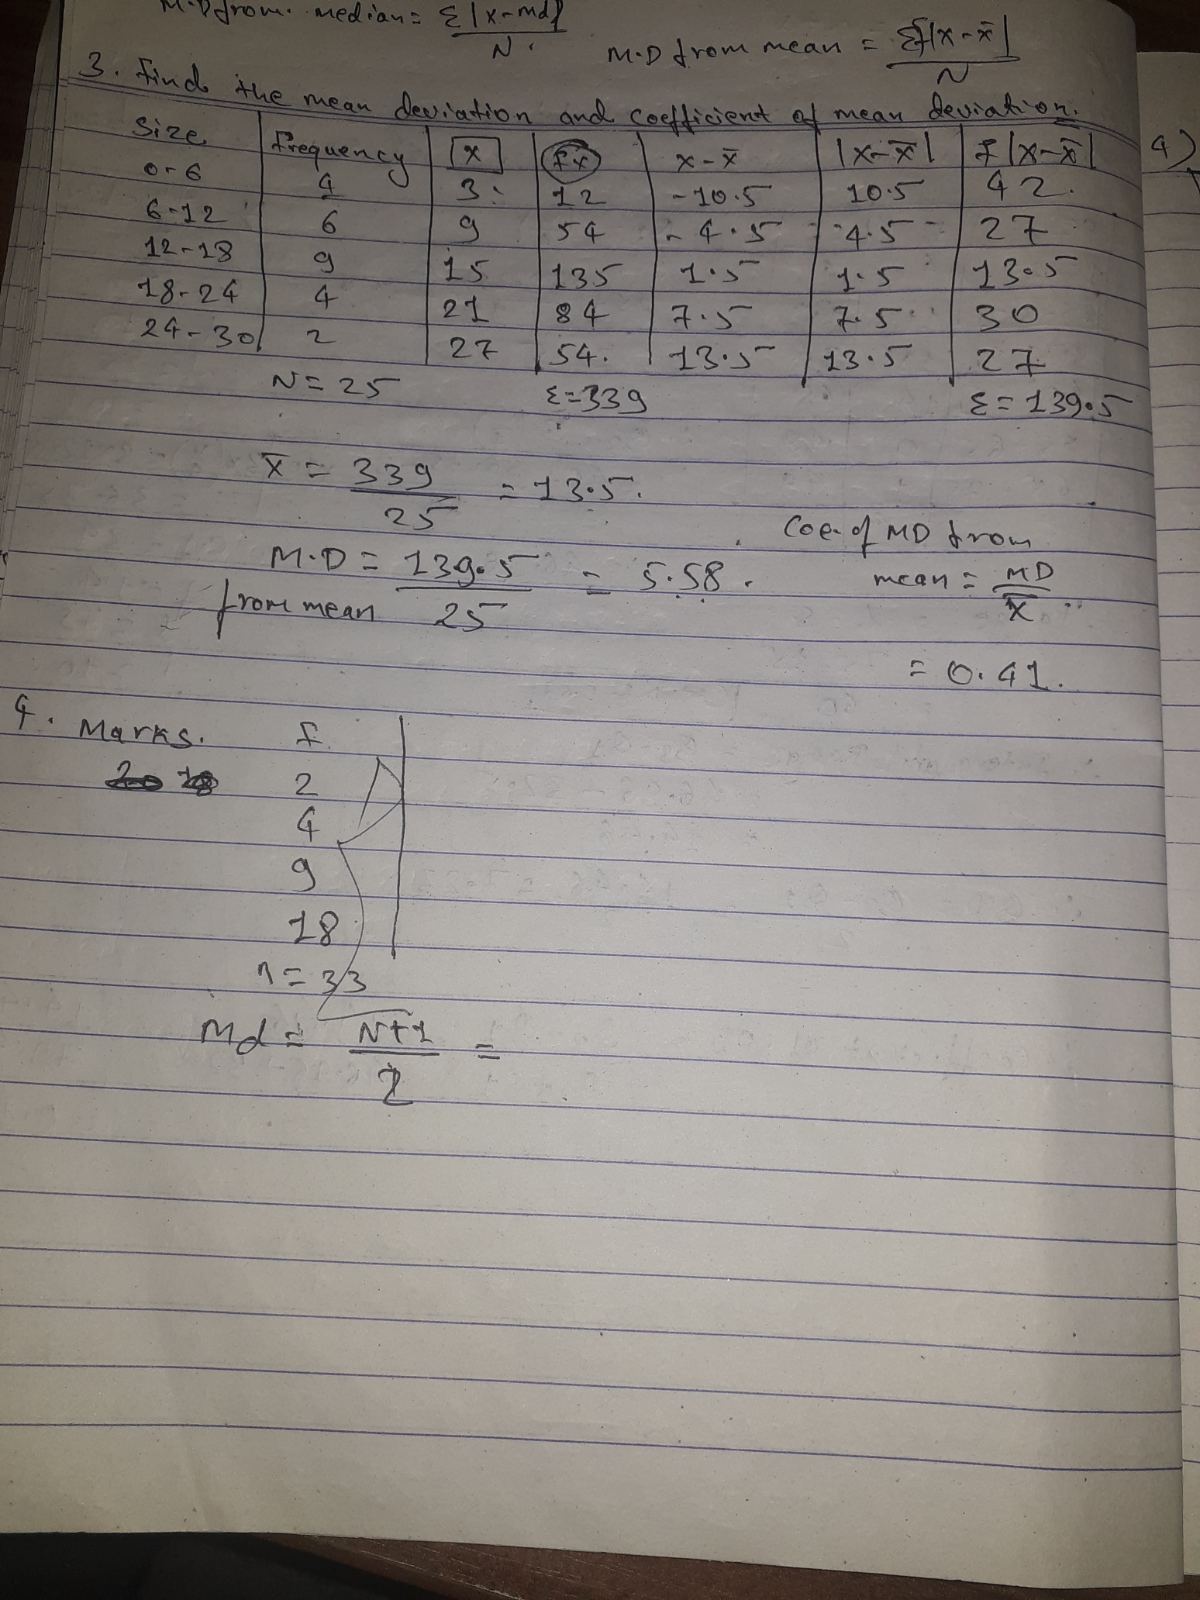 M.D from. median = Σ|x-md|
N.
M.D from mean = Σf|x-x̄|
N
3. Find the mean deviation and coefficient of mean deviation.
Size frequency x fx x-x̄ |x-x̄| f|x-x̄|
0-6 4 3 12 -10.5 10.5 42.
6-12 6 9 54 -4.5 4.5 27
12-18 9 15 135 1.5 1.5 13.5
18-24 4 21 84 7.5 7.5 30
24-30 2 27 54. 13.5 13.5 27
N=25 Σ=339 Σ=139.5
x̄ = 339 = 13.5.
25
Coe. of MD from
mean = MD
x̄
= 0.41.
M.D = 139.5 = 5.58.
from mean 25
4. Marks. f
2
4
9
18
n=33
Md = N+1 =
2
4)